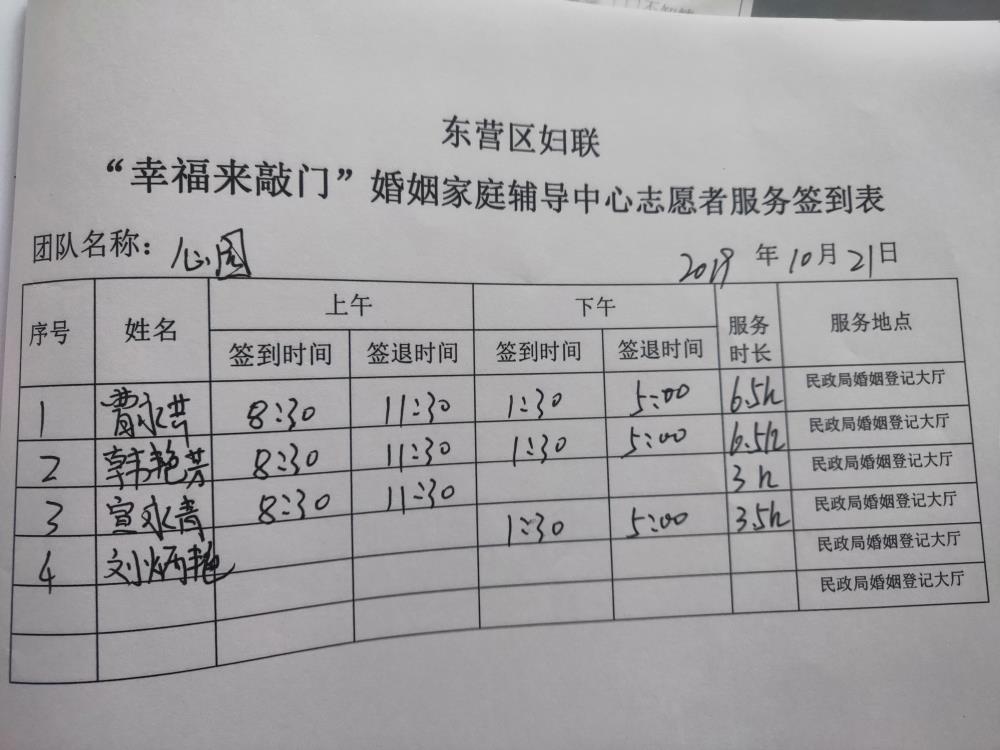 东营区妇联
“幸福来敲门”婚姻家庭辅导中心志愿者服务签到表
团队名称：心园 2019年10月21日
序号 姓名 上午 下午 服务时长 服务地点
签到时间 签退时间 签到时间 签退时间
1 曹永芹 8:30 11:30 1:30 5:00 6.5h 民政局婚姻登记大厅
2 韩艳芳 8:30 11:30 1:30 5:00 6.5h 民政局婚姻登记大厅
3 宣永青 8:30 11:30 3h 民政局婚姻登记大厅
4 刘炳艳 1:30 5:00 3.5h 民政局婚姻登记大厅
民政局婚姻登记大厅
民政局婚姻登记大厅